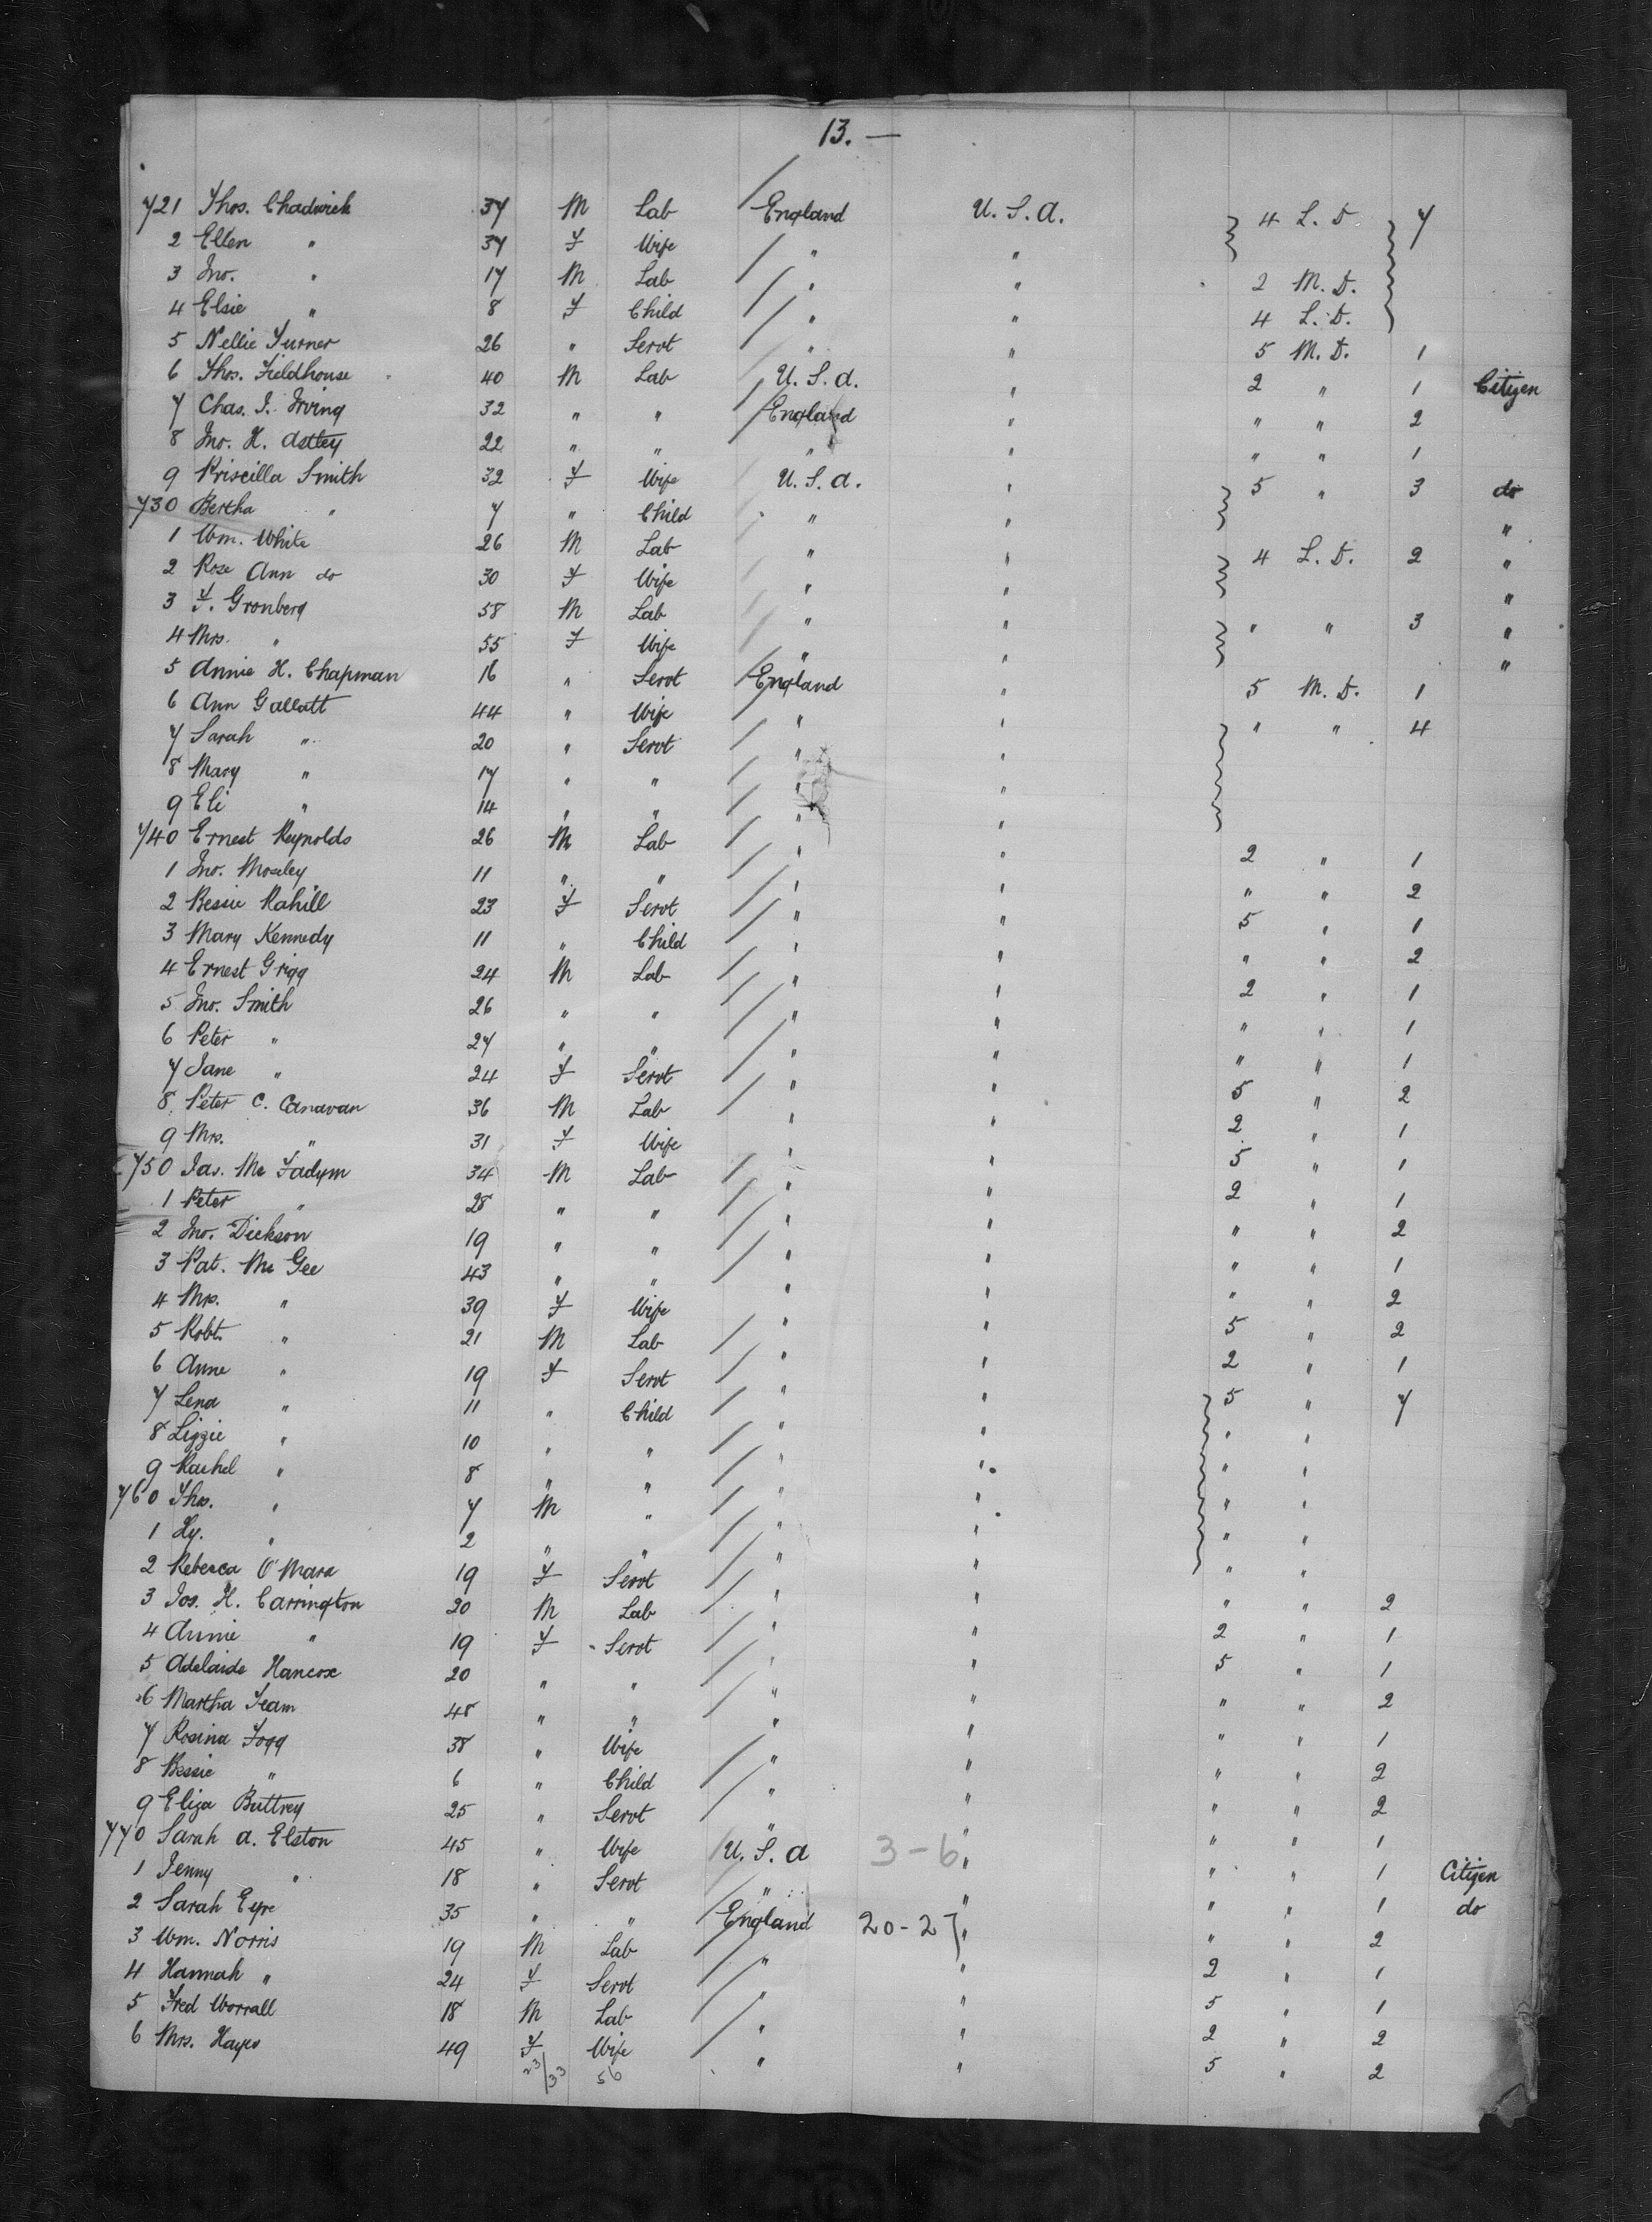 13. —
721 Thos. Chadwick 37 M Lab England U. S. A. 4 L. D. 7
2 Ellen " 37 F Wife " "
3 Jno. " 17 M Lab " " 2 M. D.
4 Elsie " 8 F Child " " 4 L. D.
5 Nellie Turner 26 " Servt " " 5 M. D. 1
6 Thos. Fieldhouse 40 M Lab U. S. A. " 2 " 1 Citizen
7 Chas. J. Irving 32 " " England " " " 2
8 Jno. H. Astley 22 " " " " " " 1
9 Priscilla Smith 32 F Wife U. S. A. " 5 " 3 do
730 Bertha " 7 " Child " " "
1 Wm. White 26 M Lab " " 4 L. D. 2 "
2 Rose Ann do 30 F Wife " " "
3 F. Gronberg 58 M Lab " " " " 3 "
4 Mrs. " 55 F Wife " " "
5 Annie H. Chapman 16 " Servt England " 5 M. D. 1
6 Ann Gallatt 44 " Wife " " " " 4
7 Sarah " 20 " Servt " "
8 Mary " 17 " " " "
9 Eli " 14 " " " "
740 Ernest Reynolds 26 M Lab " " 2 " 1
1 Jno. Mosley 11 " " " " " " 2
2 Bessie Rahill 23 F Servt " " 5 " 1
3 Mary Kennedy 11 " Child " " " " 2
4 Ernest Grigg 24 M Lab " " 2 " 1
5 Jno. Smith 26 " " " " " " 1
6 Peter " 27 " " " " " " 1
7 Jane " 24 F Servt " " 5 " 2
8 Peter C. Canavan 36 M Lab " " 2 " 1
9 Mrs. " 31 F Wife " " 5 " 1
750 Jas. Mc Fadym 34 M Lab " " 2 " 1
1 Peter " 28 " " " " " " 2
2 Jno. Dickson 19 " " " " " " 1
3 Pat. Mc Gee 43 " " " " " " 2
4 Mrs. " 39 F Wife " " 5 " 2
5 Robt. " 21 M Lab " " 2 " 1
6 Anne " 19 F Servt " " 5 " 7
7 Lena " 11 " Child " " " "
8 Lizzie " 10 " " " " " "
9 Rachel " 8 " " " " " "
760 Thos. " 7 M " " " " "
1 Hy. " 2 " " " " " "
2 Rebecca O'Mara 19 F Servt " " " " 2
3 Jos. H. Carrington 20 M Lab " " 2 " 1
4 Annie " 19 F Servt " " 5 " 1
5 Adelaide Hancox 20 " " " " " " 2
6 Martha Team 48 " " " " " " 1
7 Rosina Fogg 38 " Wife " " " " 2
8 Bessie " 6 " Child " " " " 2
9 Eliza Buttrey 25 " Servt " " " " 1
770 Sarah A. Elston 45 " Wife U. S. A 3-6 " " " 1 Citizen
1 Jenny " 18 " Servt " " " " 1 do
2 Sarah Eyre 35 " " England 20-27 " " " 2
3 Wm. Norris 19 M Lab " " 2 " 1
4 Hannah " 24 F Servt " " 5 " 1
5 Fred Worrall 18 M Lab " " 2 " 2
6 Mrs. Hayes 49 F Wife " " 5 " 2
23/33 56